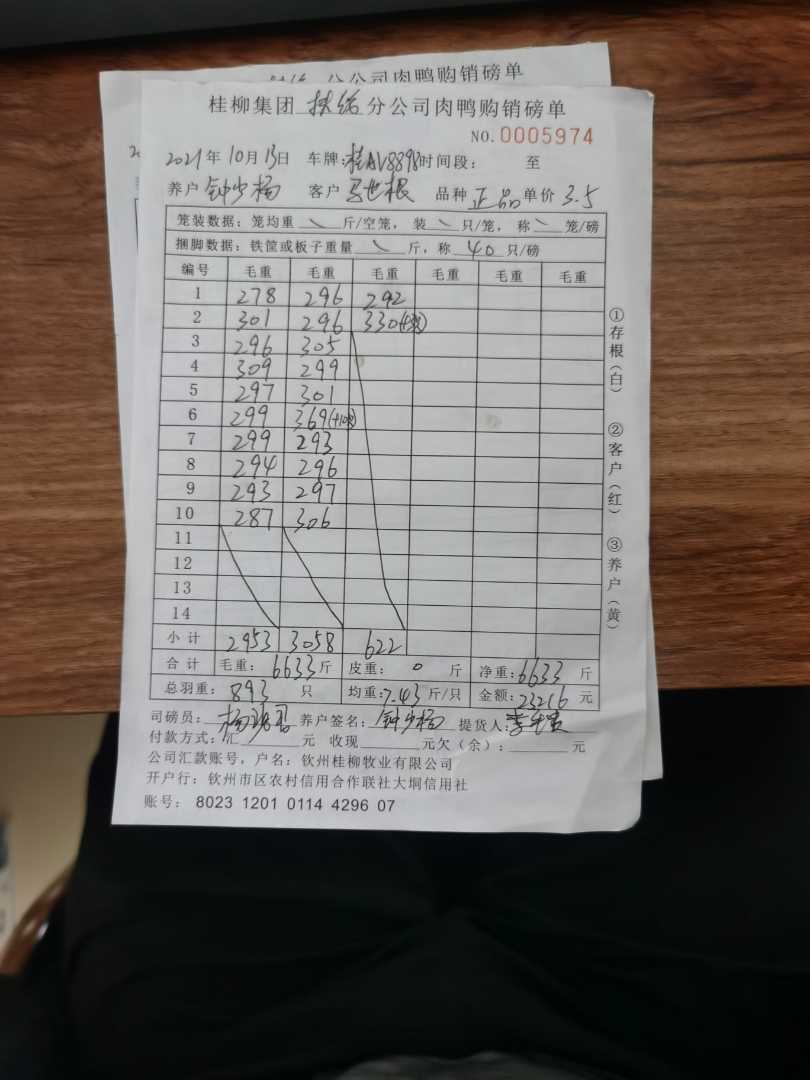 分公司肉鸭购销磅单
桂柳集团 扶绥 分公司肉鸭购销磅单
NO.0005974
2021年10月13日 车牌:桂AV8898 时间段: 至
养户 钟少杨 客户 马世根 品种 正品 单价 3.5
笼装数据:笼均重 \ 斤/空笼,装 \ 只/笼,称 \ 笼/磅
捆脚数据:铁筐或板子重量 \ 斤,称 40 只/磅
编号 毛重 毛重 毛重 毛重 毛重 毛重
1 278 296 292
2 301 296 330
3 296 305
4 309 299
5 297 301
6 299 369(+10只)
7 299 293
8 294 296
9 293 297
10 287 306
11
12
13
14
小计 2953 3058 622
合计 毛重: 6633斤 皮重: 0 斤 净重:6633 斤
总羽重: 893 只 均重:7.43斤/只 金额:23216 元
司磅员: 养户签名: 钟少杨 提货人:
付款方式:汇 元 收现 元欠(余): 元
公司汇款账号,户名:钦州桂柳牧业有限公司
开户行:钦州市区农村信用合作联社大垌信用社
账号: 8023 1201 0114 4296 07
①存根(白) ②客户(红) ③养户(黄)